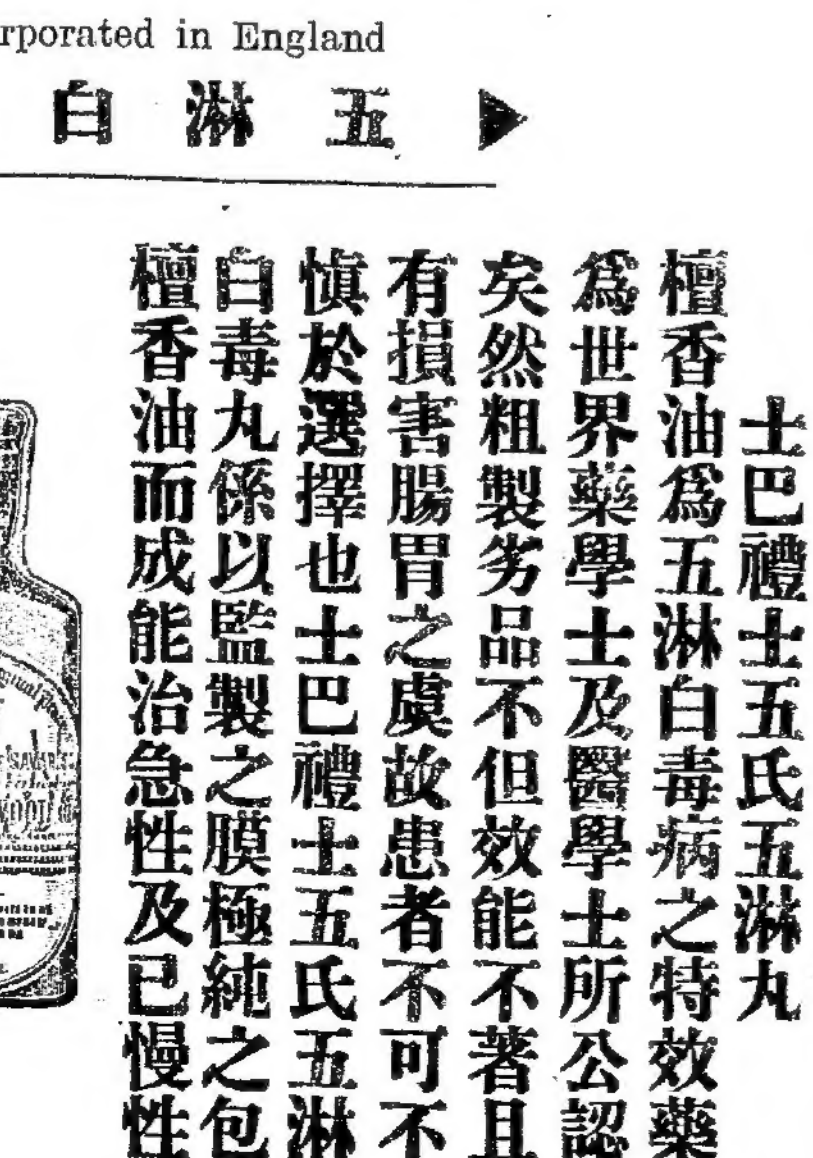 rporated in England
五淋白
士巴禮士五氏五淋丸
檀香油爲五淋白毒病之特效藥
爲世界藥學士及醫學士所公認
矣然粗製劣品不但效能不著且
有損害腸胃之虞故患者不可不
慎於選擇也士巴禮士五氏五淋
白毒丸係以監製之膜極純之包
檀香油而成能治急性及已慢性